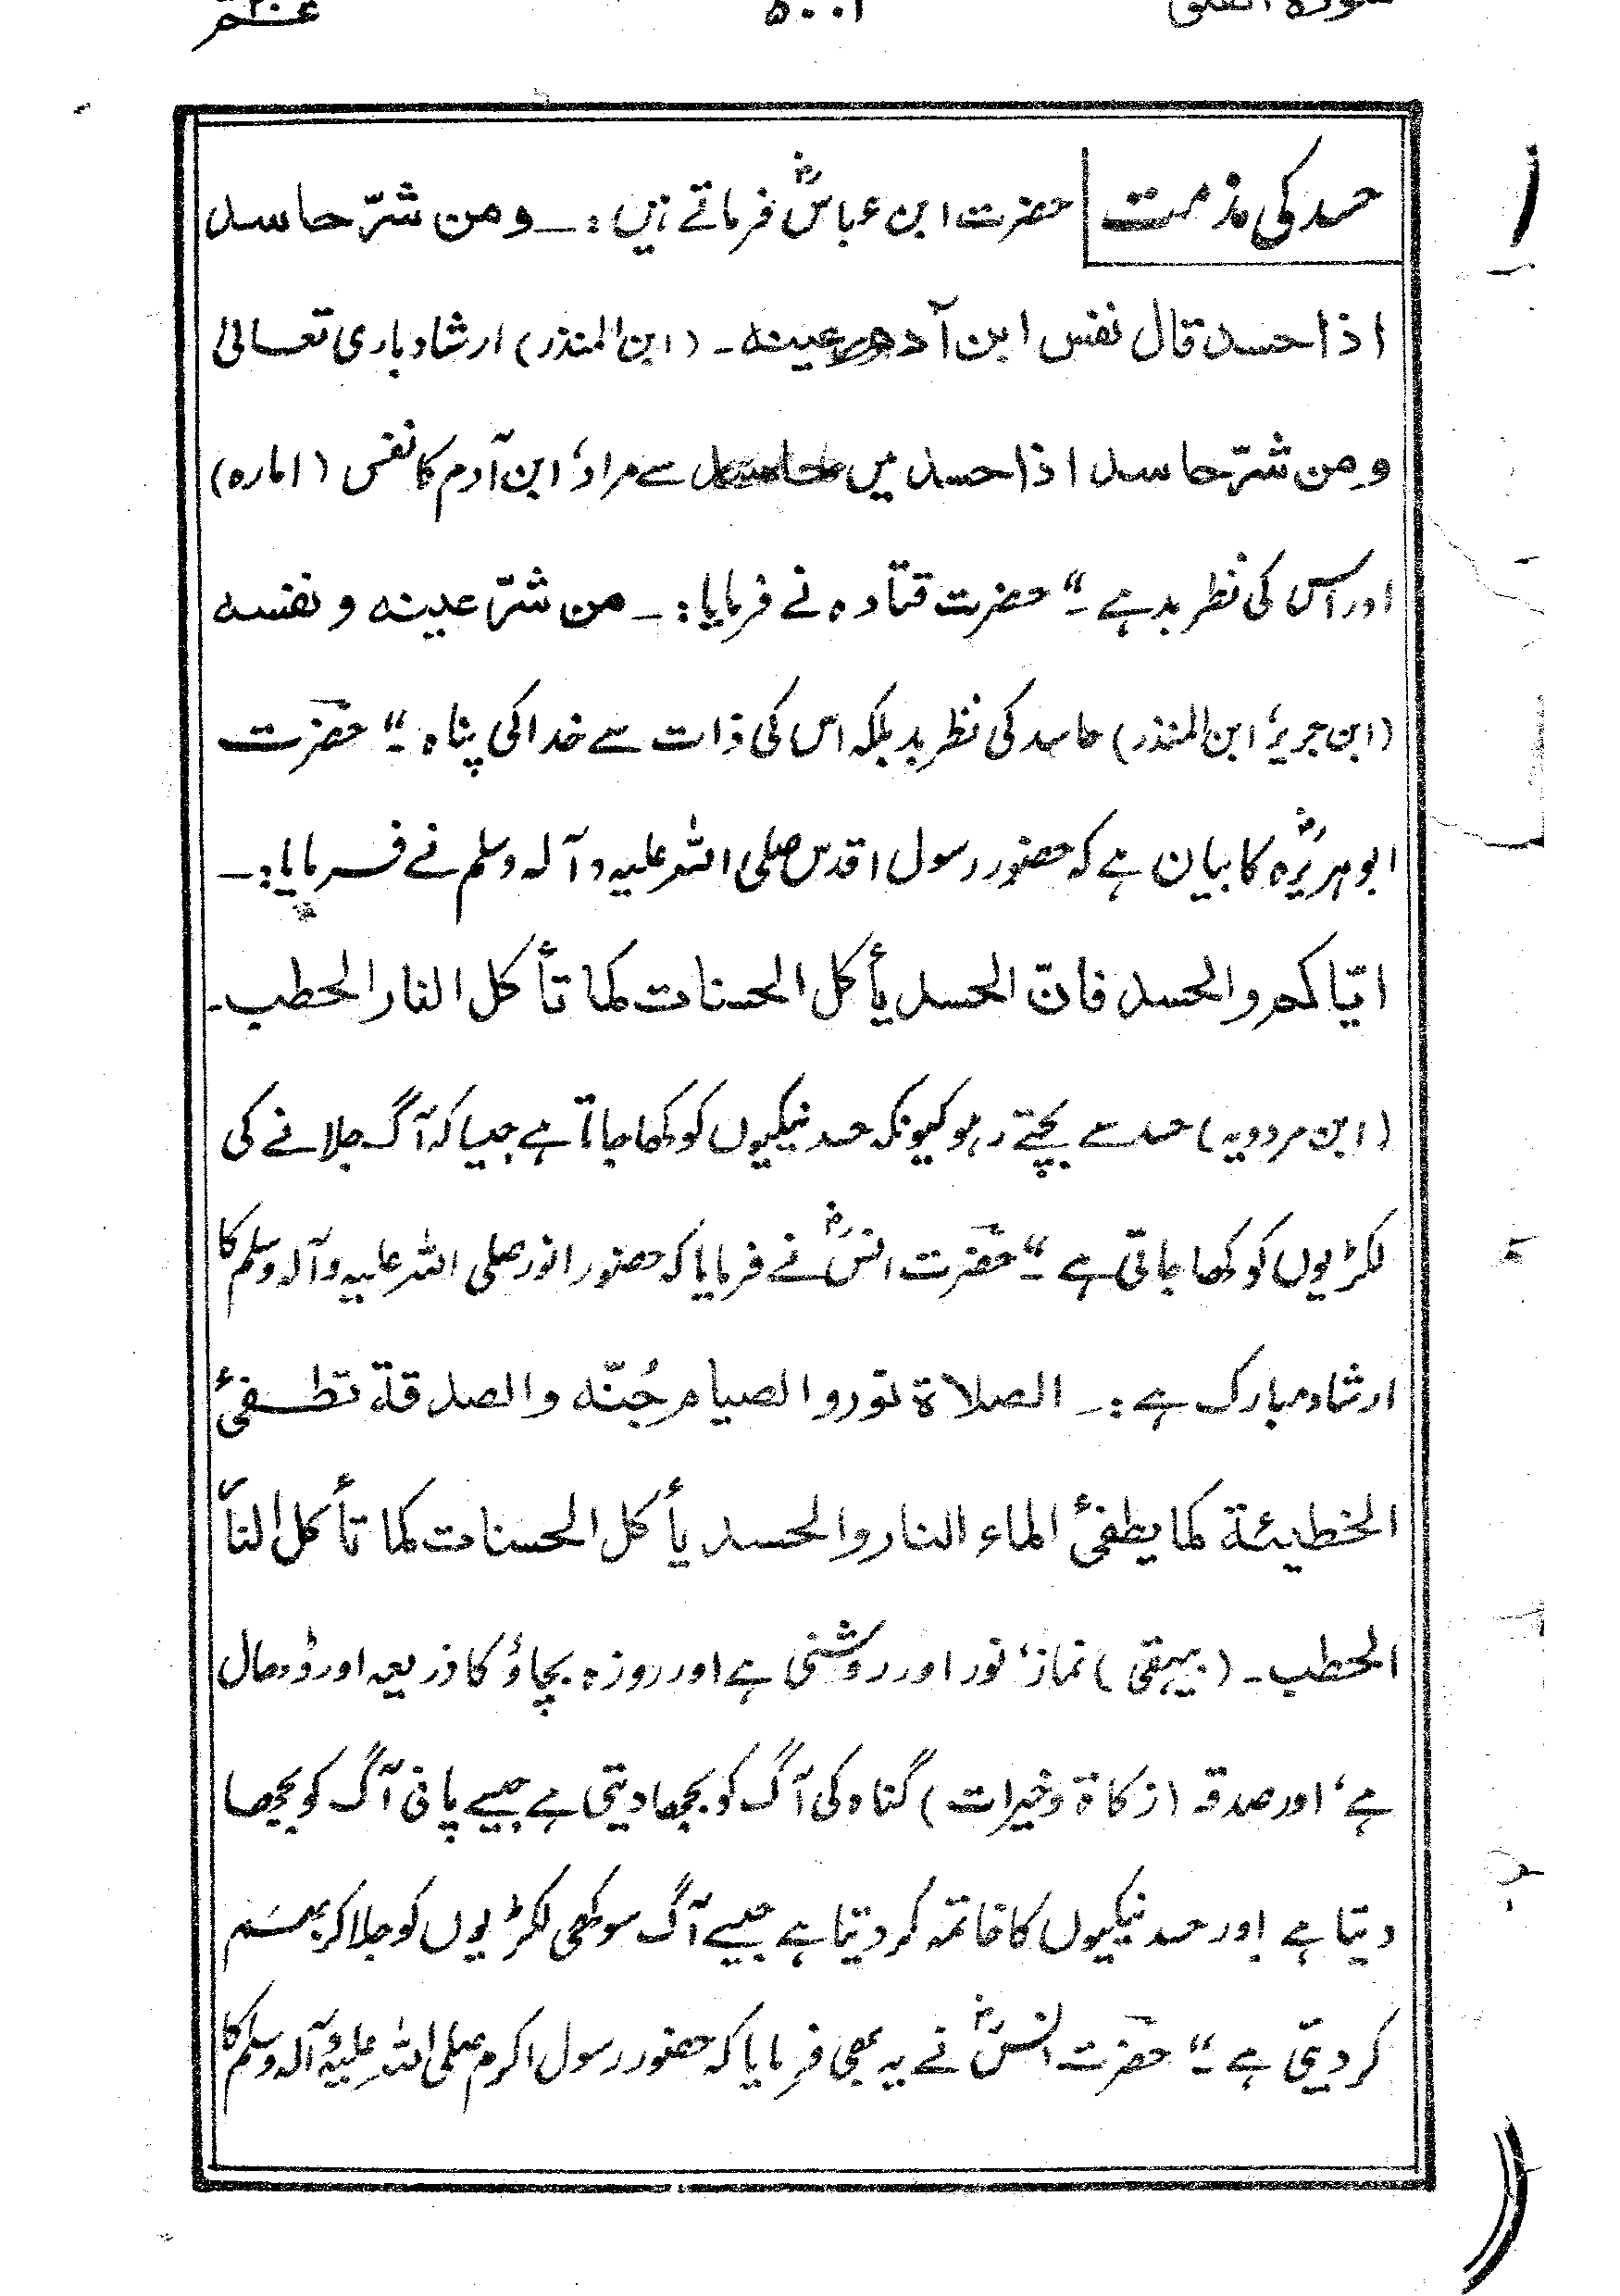 سورۃ الفلق ۵۰۰۱ عـــم ۳۰
حسد کی مذمت حضرت ابن عباسؓ فرماتے ہیں :ـ ومن شرّ حاسد
اذا حسد قال نفس ابن آدم وعینه ـ (ابن المنذر) ارشاد باری تعالیٰ
ومن شرّ حاسد اذا حسد میں حاسد سے مراد، ابن آدم کا نفس (امارہ)
اور اس کی نظر بد ہے ـ" حضرت قتادہ نے فرمایا :ـ من شرّ عینه و نفسه
(ابن جریر، ابن المنذر) حاسد کی نظر بد بلکہ اس کی ذات سے خدا کی پناہ ـ" حضرت
ابوہریرہؓ کا بیان ہے کہ حضور رسول اقدس صلی اللہ علیہ و آلہ وسلم نے فـرمایا :ـ
ایّاکم والحسد فانّ الحسد یأکل الحسنات کما تأکل النار الحطب ـ
(ابن مردویہ) حسد سے بچتے رہو کیونکہ حسد نیکیوں کو کھا جاتا ہے جیسا کہ آگ جلانے کی
لکڑیوں کو کھا جاتی ہے ـ" حضرت انسؓ نے فرمایا کہ حضور انور صلی اللہ علیہ وآلہ وسلم کا
ارشاد مبارک ہے :ـ الصلاة نور والصیام جُنّه والصدقة تطـفئ
الخطیئة کما یطفئ الماء النار والحسد یأکل الحسنات کما تأکل النار
الحطب ـ (بیہقی) نماز، نور اور روشنی ہے اور روزہ بچاؤ کا ذریعہ اور ڈھال
ہے، اور صدقہ (زکاۃ وخیرات) گناہ کی آگ کو بجھا دیتی ہے جیسے پانی آگ کو بجھا
دیتا ہے اور حسد نیکیوں کا خاتمہ کر دیتا ہے جیسے آگ سوکھی لکڑیوں کو جلا کر بھسم
کر دیتی ہے ـ" حضرت انسؓ نے یہ بھی فرمایا کہ حضور رسول اکرم صلی اللہ علیہ وآلہ وسلم کا